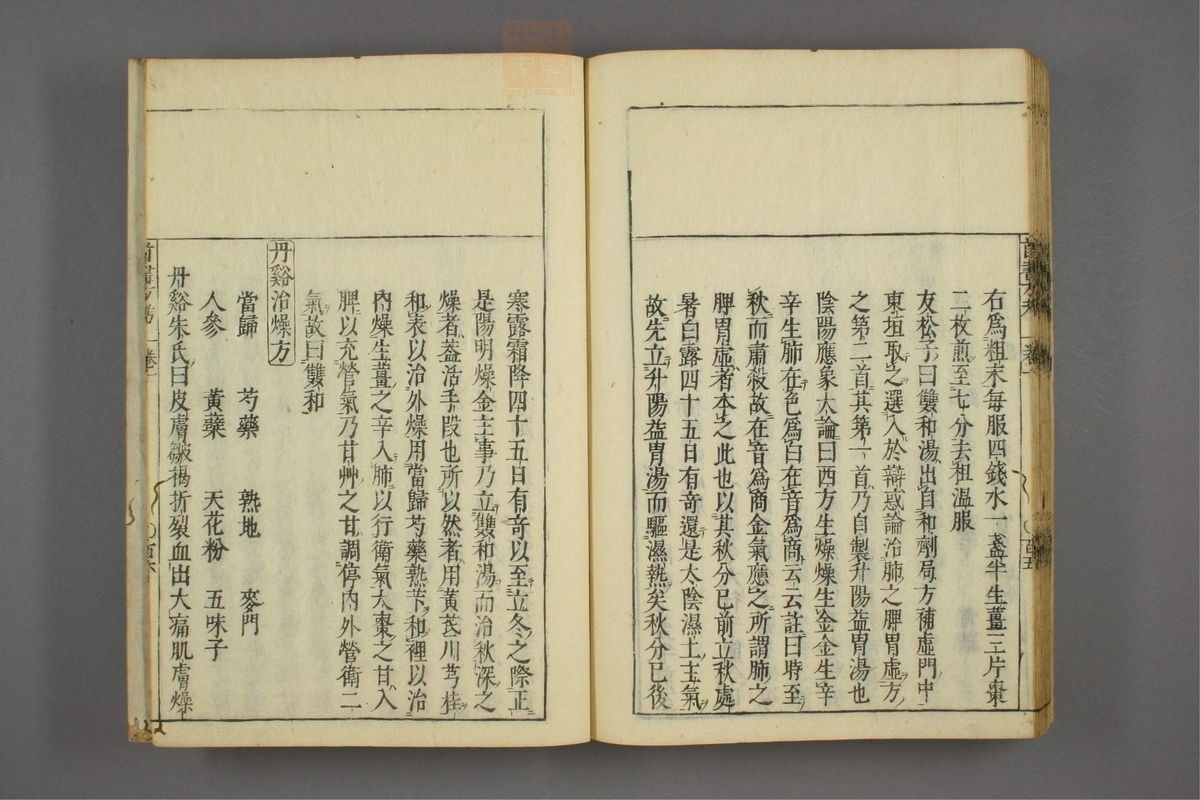 右爲粗末每服四錢水一盞半生薑三片棗
二枚煎至七分去粗溫服
友松子曰雙和湯出自和劑局方補虛門中
東垣取之選入於辯惑論治肺之脾胃虛方
之第二首其第一首乃自製升陽益胃湯也
陰陽應象大論曰西方生燥燥生金金生辛
辛生肺在色爲白在音爲商云云註曰時至
秋而肅殺故在音爲商金氣應之所謂肺之
脾胃虛者本之此也以其秋分已前立秋處
暑白露四十五日有奇還是太陰濕土主氣
故先立升陽益胃湯而驅濕熱矣秋分已後
寒露霜降四十五日有奇以至立冬之際正
是陽明燥金主事乃立雙和湯而治秋深之
燥者蓋活手段也所以然者用黃芪川芎桂
和表以治外燥用當歸芍藥熟芐和裡以治
內燥生薑之辛入肺以行衛氣大棗之甘入
脾以充營氣乃甘艸之甘調停內外營衛二
氣故曰雙和
丹谿治燥方
當歸 芍藥 熟地 麥門
人參 黃蘗 天花粉 五味子
丹谿朱氏曰皮膚皴揭折裂血出大痛肌膚燥
百五
卷一
百六